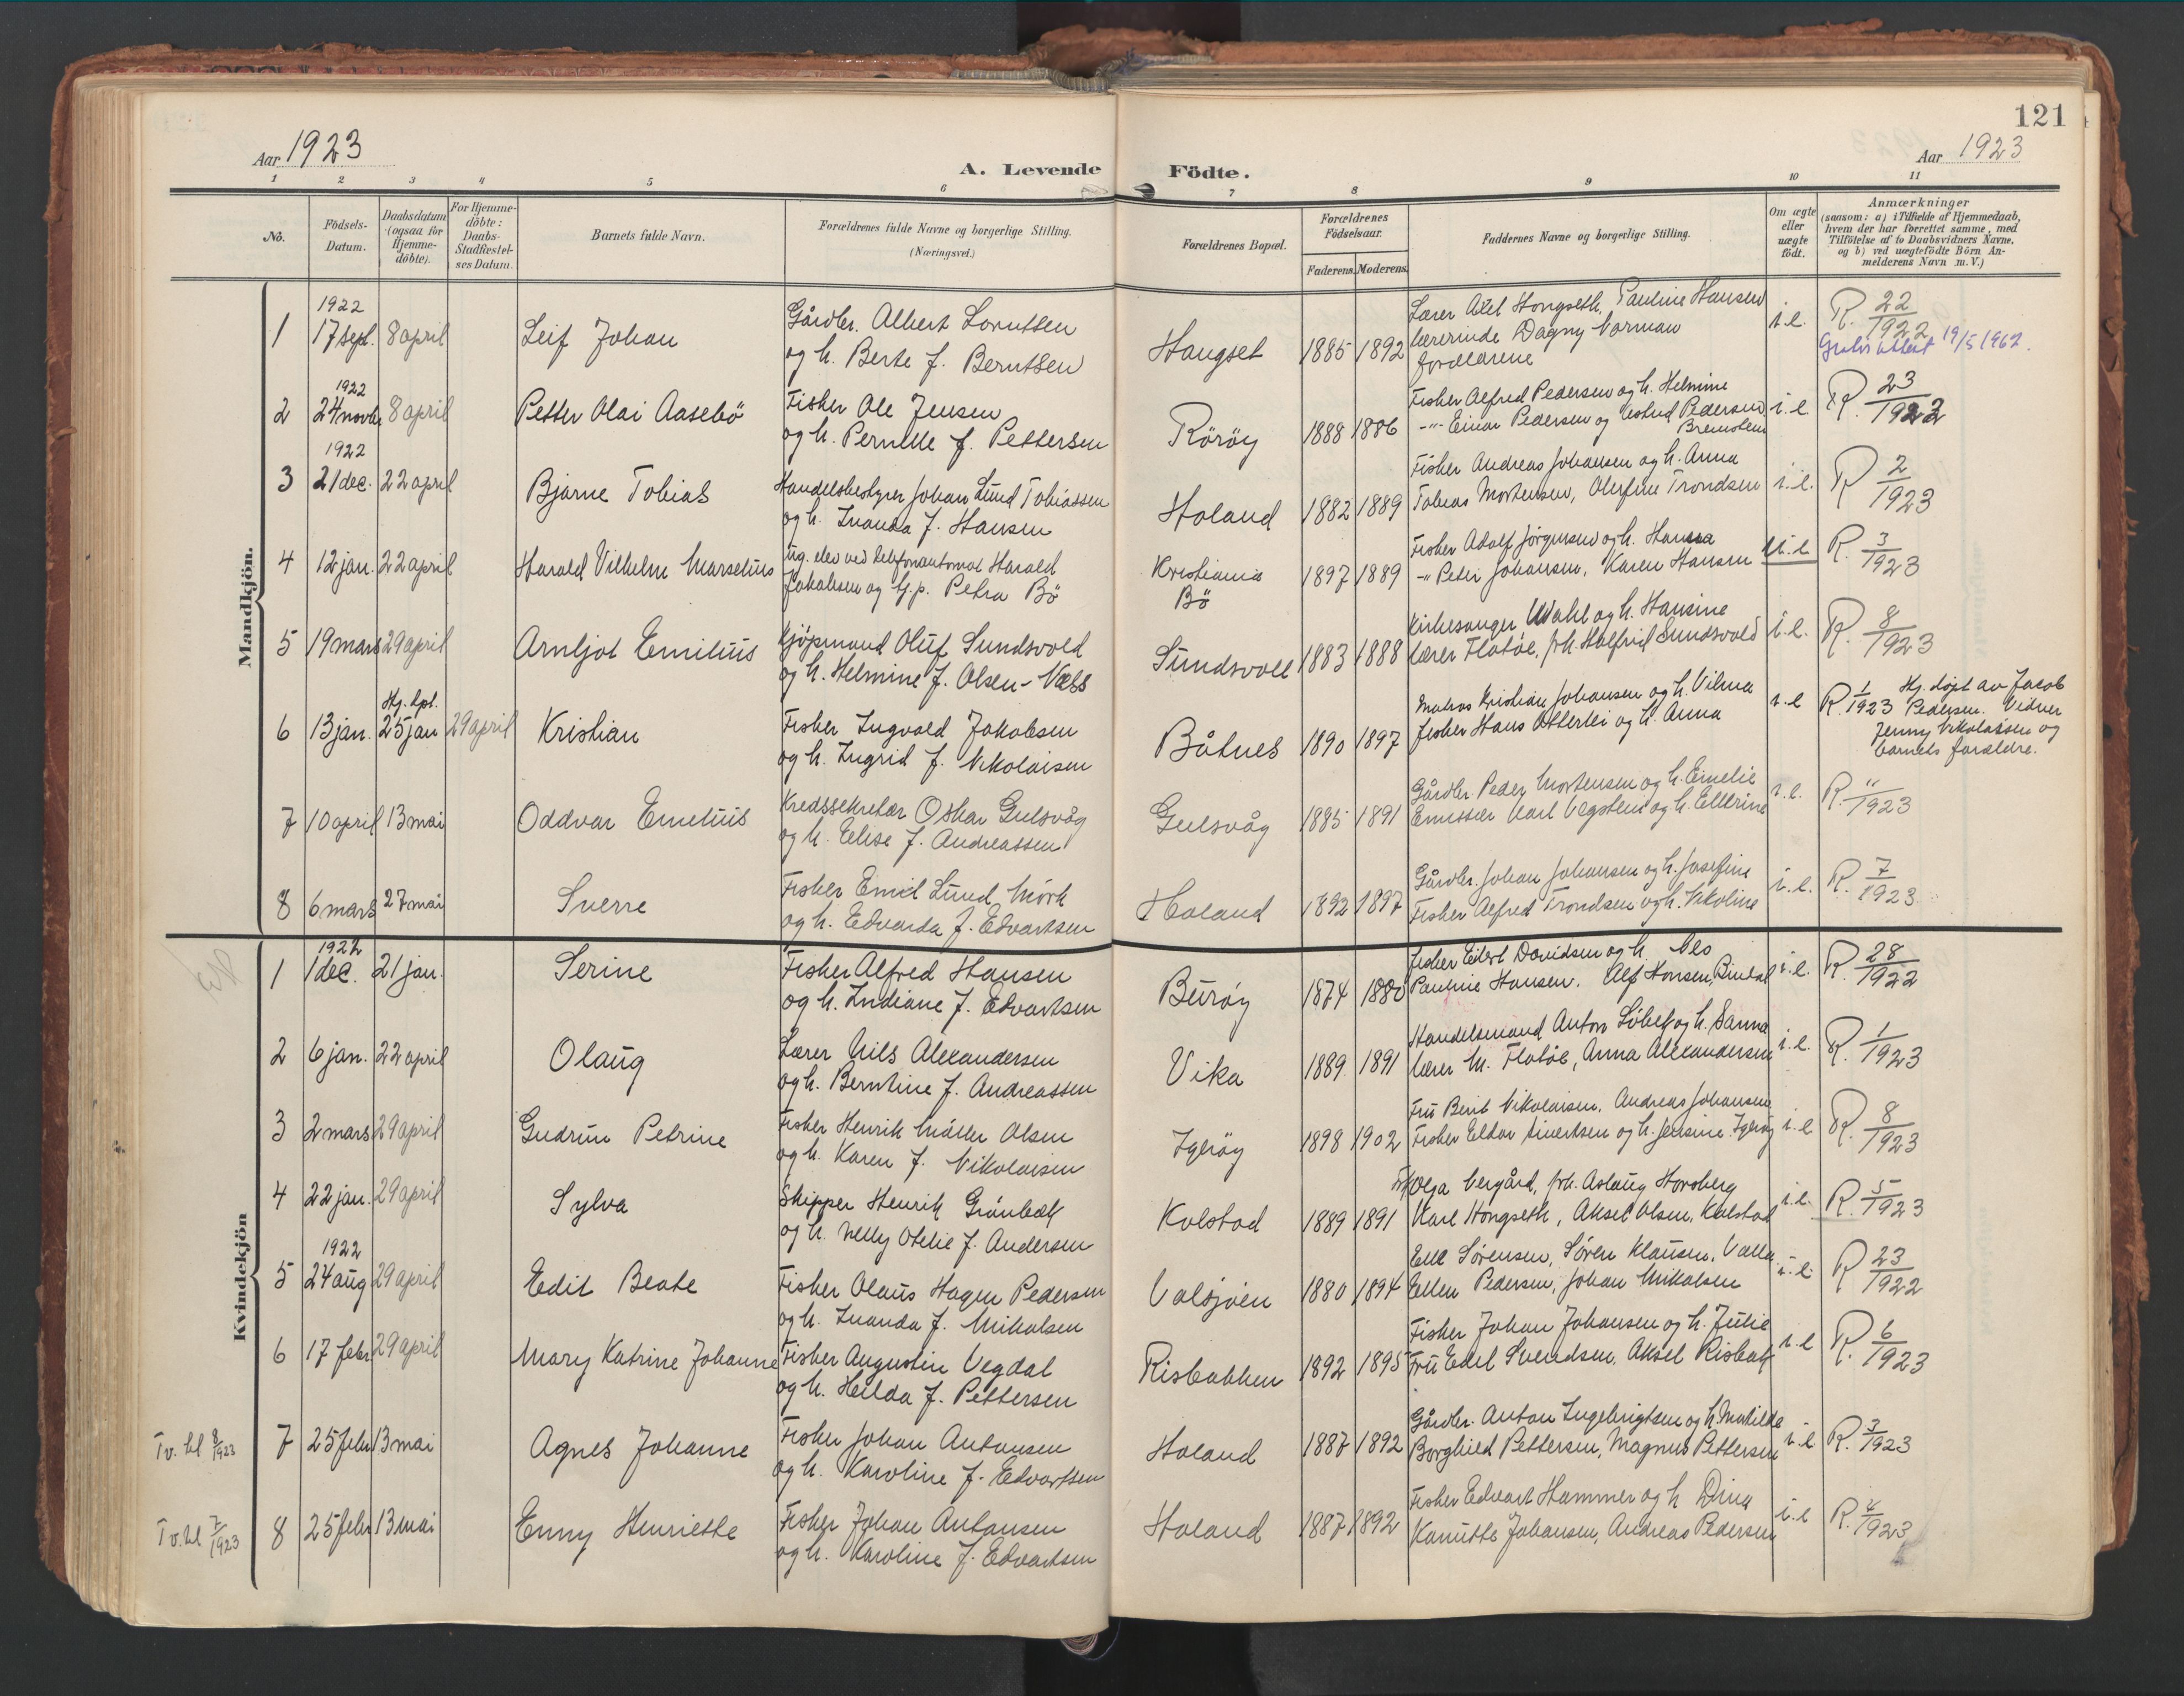 121
Aar 1923
A. Levende Födte.
Aar 1923
1 2 3 4 5 6 7 8 9 10 11
No.
Födsels-Datum.
Daabsdatum (ogsaa for Hjemme-döbte).
For Hjemme-döbte: Daabs-Stadfæstel-ses Datum.
Barnets fulde Navn.
Forældrenes fulde Navne og borgerlige Stilling.
(Næringsvei.)
Forældrenes Bopæl.
Forældrenes Födselsaar.
Faderens. Moderens.
Faddernes Navne og borgerlige Stilling.
Om ægte eller uægte födt.
Anmærkninger
(saasom: a) i Tilfælde af Hjemmedaab, hvem der har forrettet samme, med Tilföielse af to Daabsvidners Navne, og b) ved uægtefödte Börn An-melderens Navn m. V.)
Mandkjön.
1 1922 17 sept. 8 april Leif Johan
Gårdbr. Albert Lorntsen
og h. Berte f. Berntsen
Haugset 1885 1892
Lærer Axel Hongseth, Pauline Hansen
lærerinde Dagny Norman
forældrene
i.e. R. 22/1922
19/5 1962.
2 1922 24 novbr 8 april Petter Olai Aasebö
Fisker Ole Jensen
og h. Pernille f. Pettersen
Rörøy 1888 1886
Fisker Alfred Pedersen og h. Helmine
-"- Einar Pedersen og Pedersen
Bremstein
i.e. R. 23/1922
3 1922 21 dec. 22 april Bjarne Tobias
Handelsbestyrer Johan Lund Tobiassen
og h. Inanda f. Hansen
Holand 1882 1889
Fisker Andreas Johansen og h. Anna
Tobias Mortensen, Olufine Trondsen
i.e. R 2/1923
4 12 jan. 22 april Harald Vilhelm Marselius
Ug. elev ved telefonautomat Harald
Jakobsen og pi. Petra Bö
Kristiania
Bö
1897 1889
Fisker Adolf Jörgensen og h. Hansa
-"- Peder Johansen, Karen Hansen
u.e. R. 3/1923
5 19 mars 29 april Arnljot Emilius
Kjöpmand Oluf Sundsvold
og h. Helmine f. Olsen-Næss
Sundsvoll 1883 1888
Kirkesanger Wahl og h. Hansine
lærer Flatöe, frk. Halfrid Sundsvold
i.e. R. 8/1923
6 13 jan. Hj. dpt. 25 jan 29 april Kristian
Fisker Ingvald Jakobsen
og h. Ingrid f. Nikolaisen
Båtnes 1890 1897
Matros Kristian Johansen og h. Vilma
fisker Hans Otterlei og h. Anna
i.e R. 1/1923 Hj. döpt av Jacob
Pedersen. Vidner
Jenny Nikolaisen og
barnets forældre.
7 10 april 13 mai Oddvar Emilius
Kredssekretær Oskar Gulsvåg
og h. Elise f. Andreassen
Gulsvåg 1885 1891
Gårdbr. Peder Mortensen og h. Emelie
Emissær Karl Vegstein og h. Ellerine
i.e. R. 11/1923
8 6 mars 27 mai Sverre
Fisker Emil Lund Mörk
og h. Edvarda f. Edvartsen
Holand 1892 1897
Gårdbr. Johan Johansen og h. Josefine
Fisker Alfred Trondsen og h. Nikoline
i.e. R. 7/1923
Kvindekjön
1 1922 1 dec. 21 jan. Serine
Fisker Alfred Hansen
og h. Indiane f. Edvartsen
Burøy 1874 1880
fisker Edert Davidsen og h. Nes
Pauline Hansen. Alf Hansen, Bindal
i.e. R. 28/1922
2 6 jan. 22 april Olaug
Lærer Nils Alexandersen
og h. Berntine f. Andreassen
Vika 1889 1891
Handelsmand Anton Löbeg og h. Sanna
lærer M. Flatöe, Anna Alexandersen
i.e. R. 1/1923
3 2 mars 29 april Gudrun Petrine
Fisker Henrik Müller Olsen
og h. Karen f. Nikolaisen
Igeröy 1898 1902
Fru Berit Nikolaisen. Andreas Johansen
Fisker Eldor Sivertsen og h. Jensine. Igeröy
i.e R. 8/1923
4 22 jan. 29 april Sylva
Skipper Henrik Grönbæk
og h. Nelly Otelie f. Andersen
Kolstad 1889 1891
Frk Olga Vergård, frk. Aslaug Horsberg
Karl Hongseth, Aksel Olsen, Kolstad
i.e. R. 5/1923
5 1922 24 aug 29 april Edit Beate
Fisker Olaus Hagen Pedersen
og h. Inanda f. Mikalsen
Valsjöen 1880 1894
Elle Sörensen, Sören Klausen, Valla
Ellen Pedersen, Johan Mikalsen
i.e. R 23/1922
6 17 febr 29 april Mary Katrine Johanne
Fisker Augustin Vegdal
og h. Hilda f. Pettersen
Risbakken 1892 1895
Fisker Johan Johansen og h. Julie
Fru Edel Svendsen. Aksel Risbak
i.e R. 6/1923
Tv. til 8/1923
7 25 febr 13 mai Agnes Johanne
Fisker Johan Antonsen
og h. Karoline f. Edvartsen
Holand 1887 1892
Gårdbr. Anton Ingebrigtsen og h. Matilda
Borghild Pettersen, Magnus Pettersen
i.e R. 3/1923
Tv. til 7/1923
8 25 febr 13 mai Enny Henriette
Fisker Johan Antonsen
og h. Karoline f. Edvartsen
Holand 1887 1892
Fisker Edvart Hammer og h Dina
Kanutte Johansen, Andreas Pedersen
i.e R. 4/1923